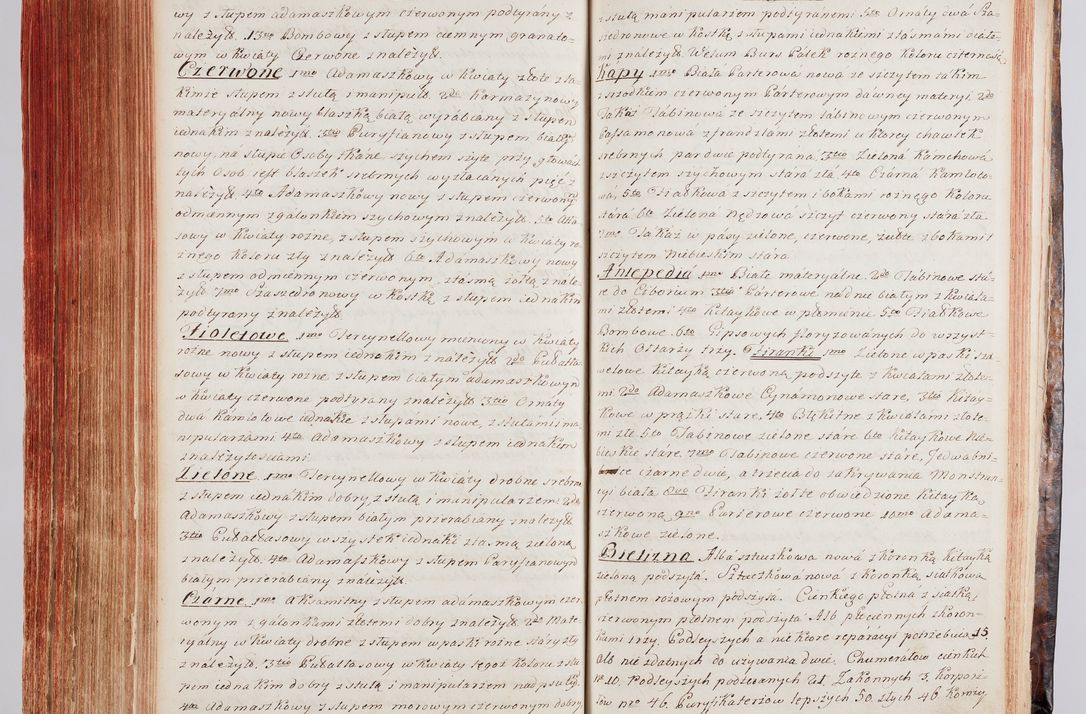 wy z stupem adamaszkowym czerwonym podszyrány z
należyt. 13tio Bombowy z stupem ciemnym granato-
wym w kwiaty Czerwone z należyt.
Czerwone 1mo Adamaszkowy w kwiaty złote z ta-
kimże stupem z stułą i manipul. 2do Karmazynowy
materyalny nowy blaszką białą wyrabiany z stupem
iednakim z należyt. 3tio Paryfianowy z stupem białym
nowy, na stupie Osoby tkáne szychem szyte przy głowach
tych Osob iest blaszek srebrnych wyzłacanych pięć z
należyt. 4to Adamaszkowy nowy z stupem czerwonym
odmennym z galonkiem szychowym z należyt. 5to Atła-
sowy w kwiaty rozne, z stupem szychowym w kwiaty ro-
znego koloru zły z należyt. 6to Adamaszkowy nowy
z stupem odmiennym czerwonym, z tásmą żołtą z nale-
żyt. 7mo Szaszedronowy w kostkę z stupem iednakim
podszyrany z należyt.
Fioletowe 1mo Tercynellowy musiony w kwiaty
rozne nowy z stupem iednakim z należyt. 2do Pukatła-
sowy w kwiaty rozne z stupem białym adamaszkowym
w kwiaty czerwone podszyrany z należyt. 3tio Ornaty
dwá kámlotowe iednakie z stupámi nowe, z stułámi i ma-
nipularzámi 4to Adamaszkowy z stupem iednakim
z należytosciami.
Zielone 1mo Tercynellowy w kwiaty drobne srebrne
z stupem iednakim dobry z stułą i manipularzem 2do
Adamaszkowy z stupem białym przerabiany z należyt.
3tio Pukatłasowy wszystek iednaki z tasmą zieloną
z należyt. 4to Adamaszkowy z stupem Paryfianowym
białym przerabiany z należyt.
Czárne 1mo Aksamitny z stupem adámaszkowym czer-
wonym z galonkami złotemi dobry z należyt. 2do Mate-
ryalny w kwiaty drobne z stupem w paski rozne stary zły
z należyt. 3tio Pukatłasowy w kwiaty tegoż koloru z stu-
pem iednakim dobry z stułą i manipularzem nadpsuty.
4to Adamaszkowy z stupem morowym czerwonym dobry
z stułą manipularzem podszyranemi 5to Ornaty dwá Sza-
zedronowe w kostkę z stupami iednakiemi z tásmámi białe-
mi z należyt. Welum Burs Pálek roznego koloru czternaście
Kapy 1mo Białá Parterowa nowa ze szczytem takim
z srzodkiem czerwonym Párterowym dáwney materyi 2do
Tákáż Tábinowá ze szczytem tabinowym czerwonym
balsamenowa z frandzlámi złotemi u ktorey chawtek
srebrnych par dwie podszyrana 3tio Zielona Kámchowá
z szczytem szychowym stará zła 4to Czárná Kamloto-
wá, 5to Fiałkowa z szczytem i bokami roznego koloru
stárá 6to Zielona Nędzową szczyt czerwony stará zła
7mo Takáż w pásy zielone, czerwone, żułte z bokami i
szczytem Niebieskim stara
Antepedia 1mo Białe materyalne 2do Tabinowe stá-
re do Ciborium 3tio Párterowe nadnie białym z kwiata-
mi złotemi 4to Kitaykowe w płomienie 5to Fiałkowe
Bombowe 6to Gipsowych floryzowánych do wszyst-
kich Ołtarzy trzy. Firanki 1mo Zielone w paski sza-
wełowe kitayką czerwoną podszyte z kwiatami złote-
mi 2do Adamaszkowe Cynámonowe stare, 3tio kitay-
kowe w prążki stare, 4to Błękitne z kwiatami złote-
mi złe 5to Tabinowe zielone stáre 6to kitaykowe Nie-
bieskie stare 7mo Tabinowe czerwone stáre, Jedwabni-
ce czárne dwie, a trzecia do zakrywania Monstran-
cyi biała 8vo Firanki żołte obwiedzione kitayką
czerwoną 9no Párterowe czerwone 10mo Adama-
szkowe zielone.
Bielizna Albá sztuczkowa nowá z koronką kitayką
zieloną podszytá. Sztuczkowá nowá z koronką siatkową
płotnem rożowym podszyta. Cienkiego płotna z siatką
czerwonym płotnem podszyta Alb płociennych z koron-
kami trzy. Podleyszych a niektore reparacyi potrzebuią 15.
Alb niezdatnych do używania dwie. Chumerałow cienkich
No 10. Podleyszych podszewanych 21. Zakonnych 3. Korpora-
łow No 46. Puryfikaterzow lepszych 50. złych 46. Komży